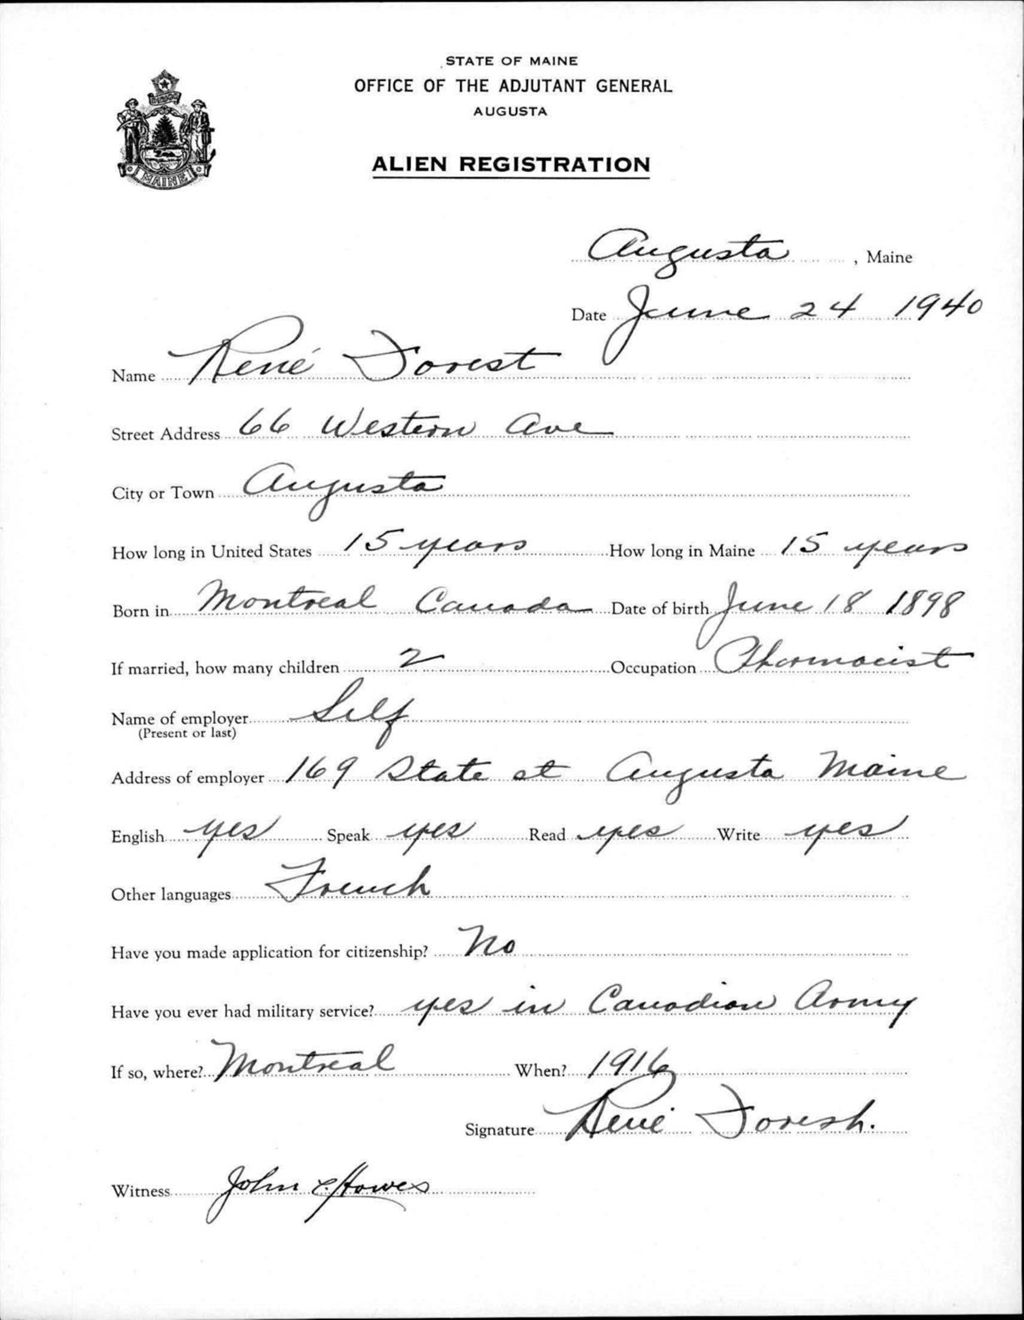 STATE OF MAINE
OFFICE OF THE ADJUTANT GENERAL
AUGUSTA
ALIEN REGISTRATION
MAINE
Augusta, Maine
Date June 24 1940
Name René Forest
Street Address 66 Western Ave
City or Town Augusta
How long in United States 15 years How long in Maine 15 years
Born in Montreal Canada Date of birth June 18 1898
If married, how many children 2 Occupation Pharmacist
Name of employer Self
(Present or last)
Address of employer 169 State st Augusta Maine
English yes Speak yes Read yes Write yes
Other languages French
Have you made application for citizenship? No
Have you ever had military service? yes in Canadian Army
If so, where? Montreal When? 1916
Signature René Forest.
Witness John C. Howes